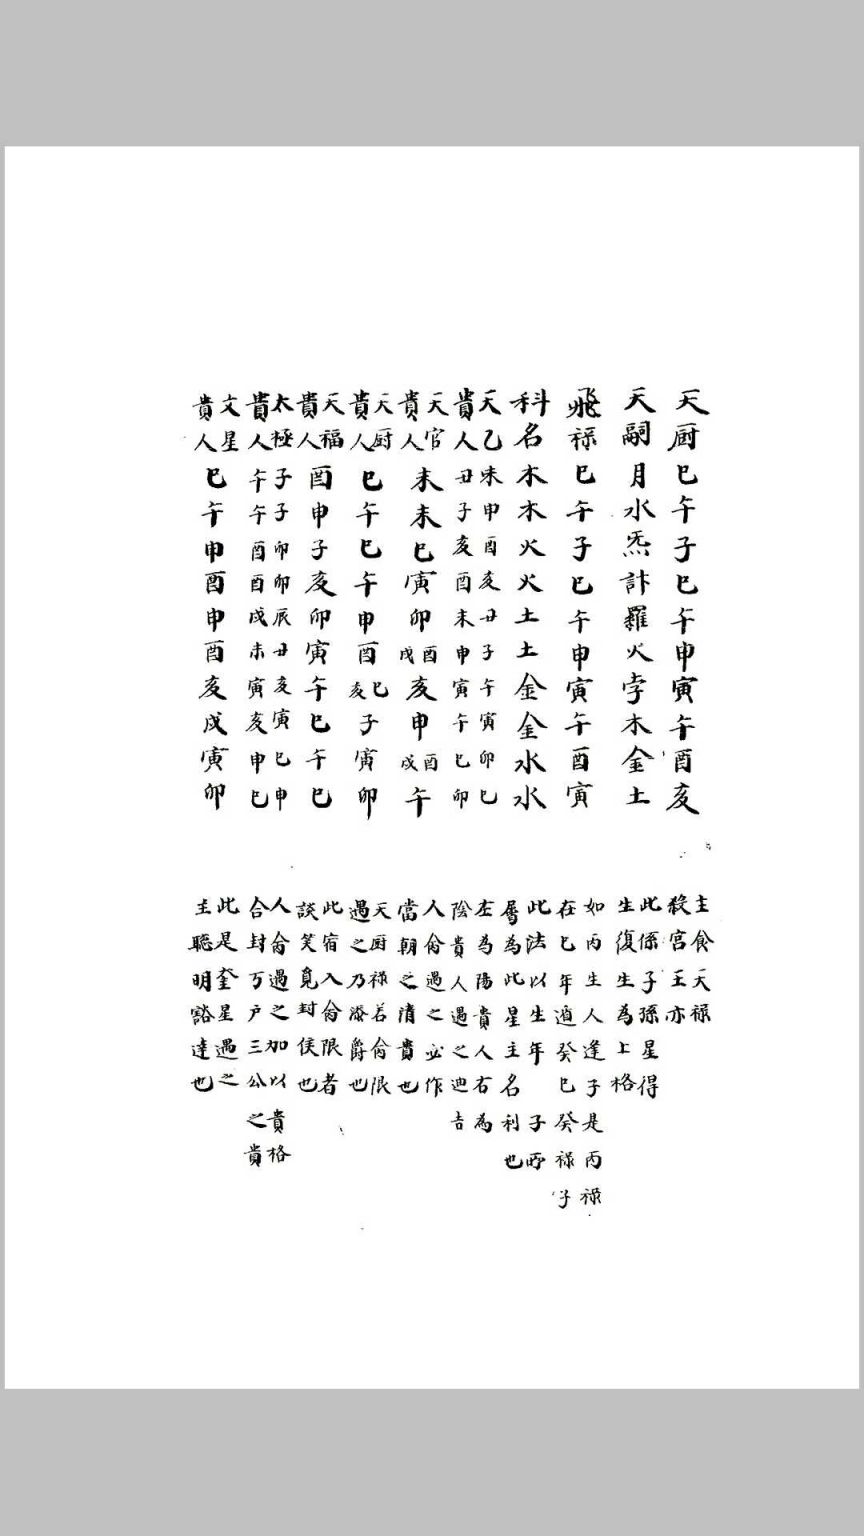 天厨巳午子巳午申寅午酉亥
主食天禄
殺宮王亦
天嗣月水炁計羅火孛木金土
此係子孫星得
生復生為上格
飛禄巳午子巳午申寅午酉寅
如丙生人逢子是丙禄
在巳年遁癸巳癸禄子
科名木木火火土土金金水水
此法以生年 子所
屬為此星主名利也
天乙未申酉亥丑子午寅卯巳
貴人丑子亥酉未申寅午巳卯
左為陽貴人右為
陰貴人遇之迪吉
天官貴人未未巳寅卯酉戌亥申酉戌午
人命遇之必作
當朝之清貴也
天厨貴人巳午巳午申酉巳亥子寅卯
天厨禄若命限
遇之乃添爵也
天福貴人酉申子亥卯寅午巳午巳
此宿入命限者
談笑覓封侯也
太極子子卯卯辰丑亥寅巳申
貴人午午酉酉戌未寅亥申巳
人命遇之加以貴格
合封万户三公之貴
文星貴人巳午申酉申酉亥戌寅卯
此是奎星遇之
主聰明豁達也